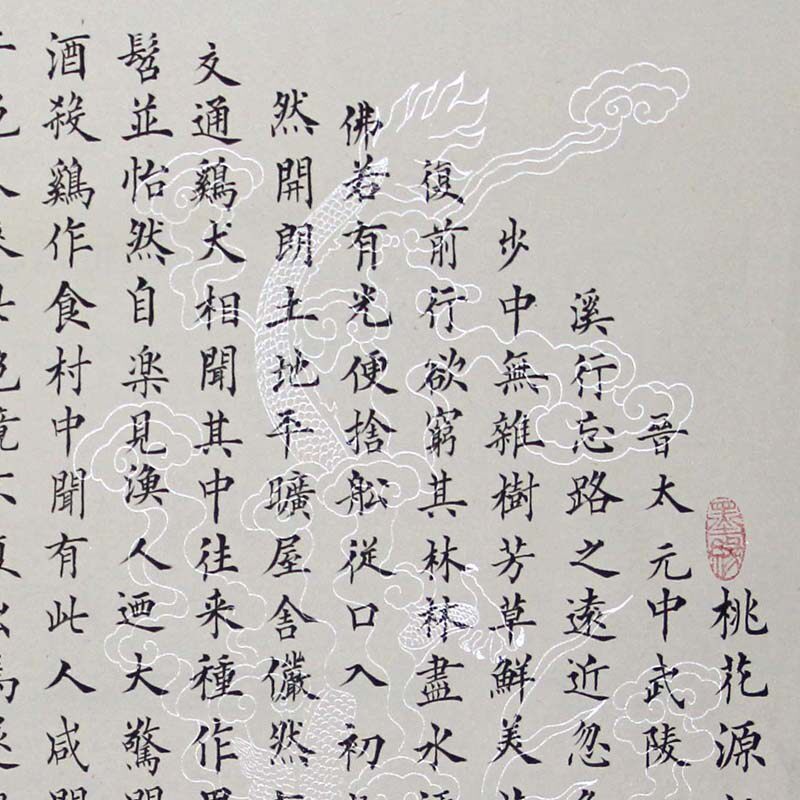 桃花源
晉太元中武陵
溪行忘路之遠近忽
步中無雜樹芳草鮮美
復前行欲窮其林林盡水
佛若有光便捨舩従口入初
然開朗土地平曠屋舍儼然
交通鷄犬相聞其中往来種作
髫並怡然自楽見漁人迺大驚
酒殺鷄作食村中聞有此人咸